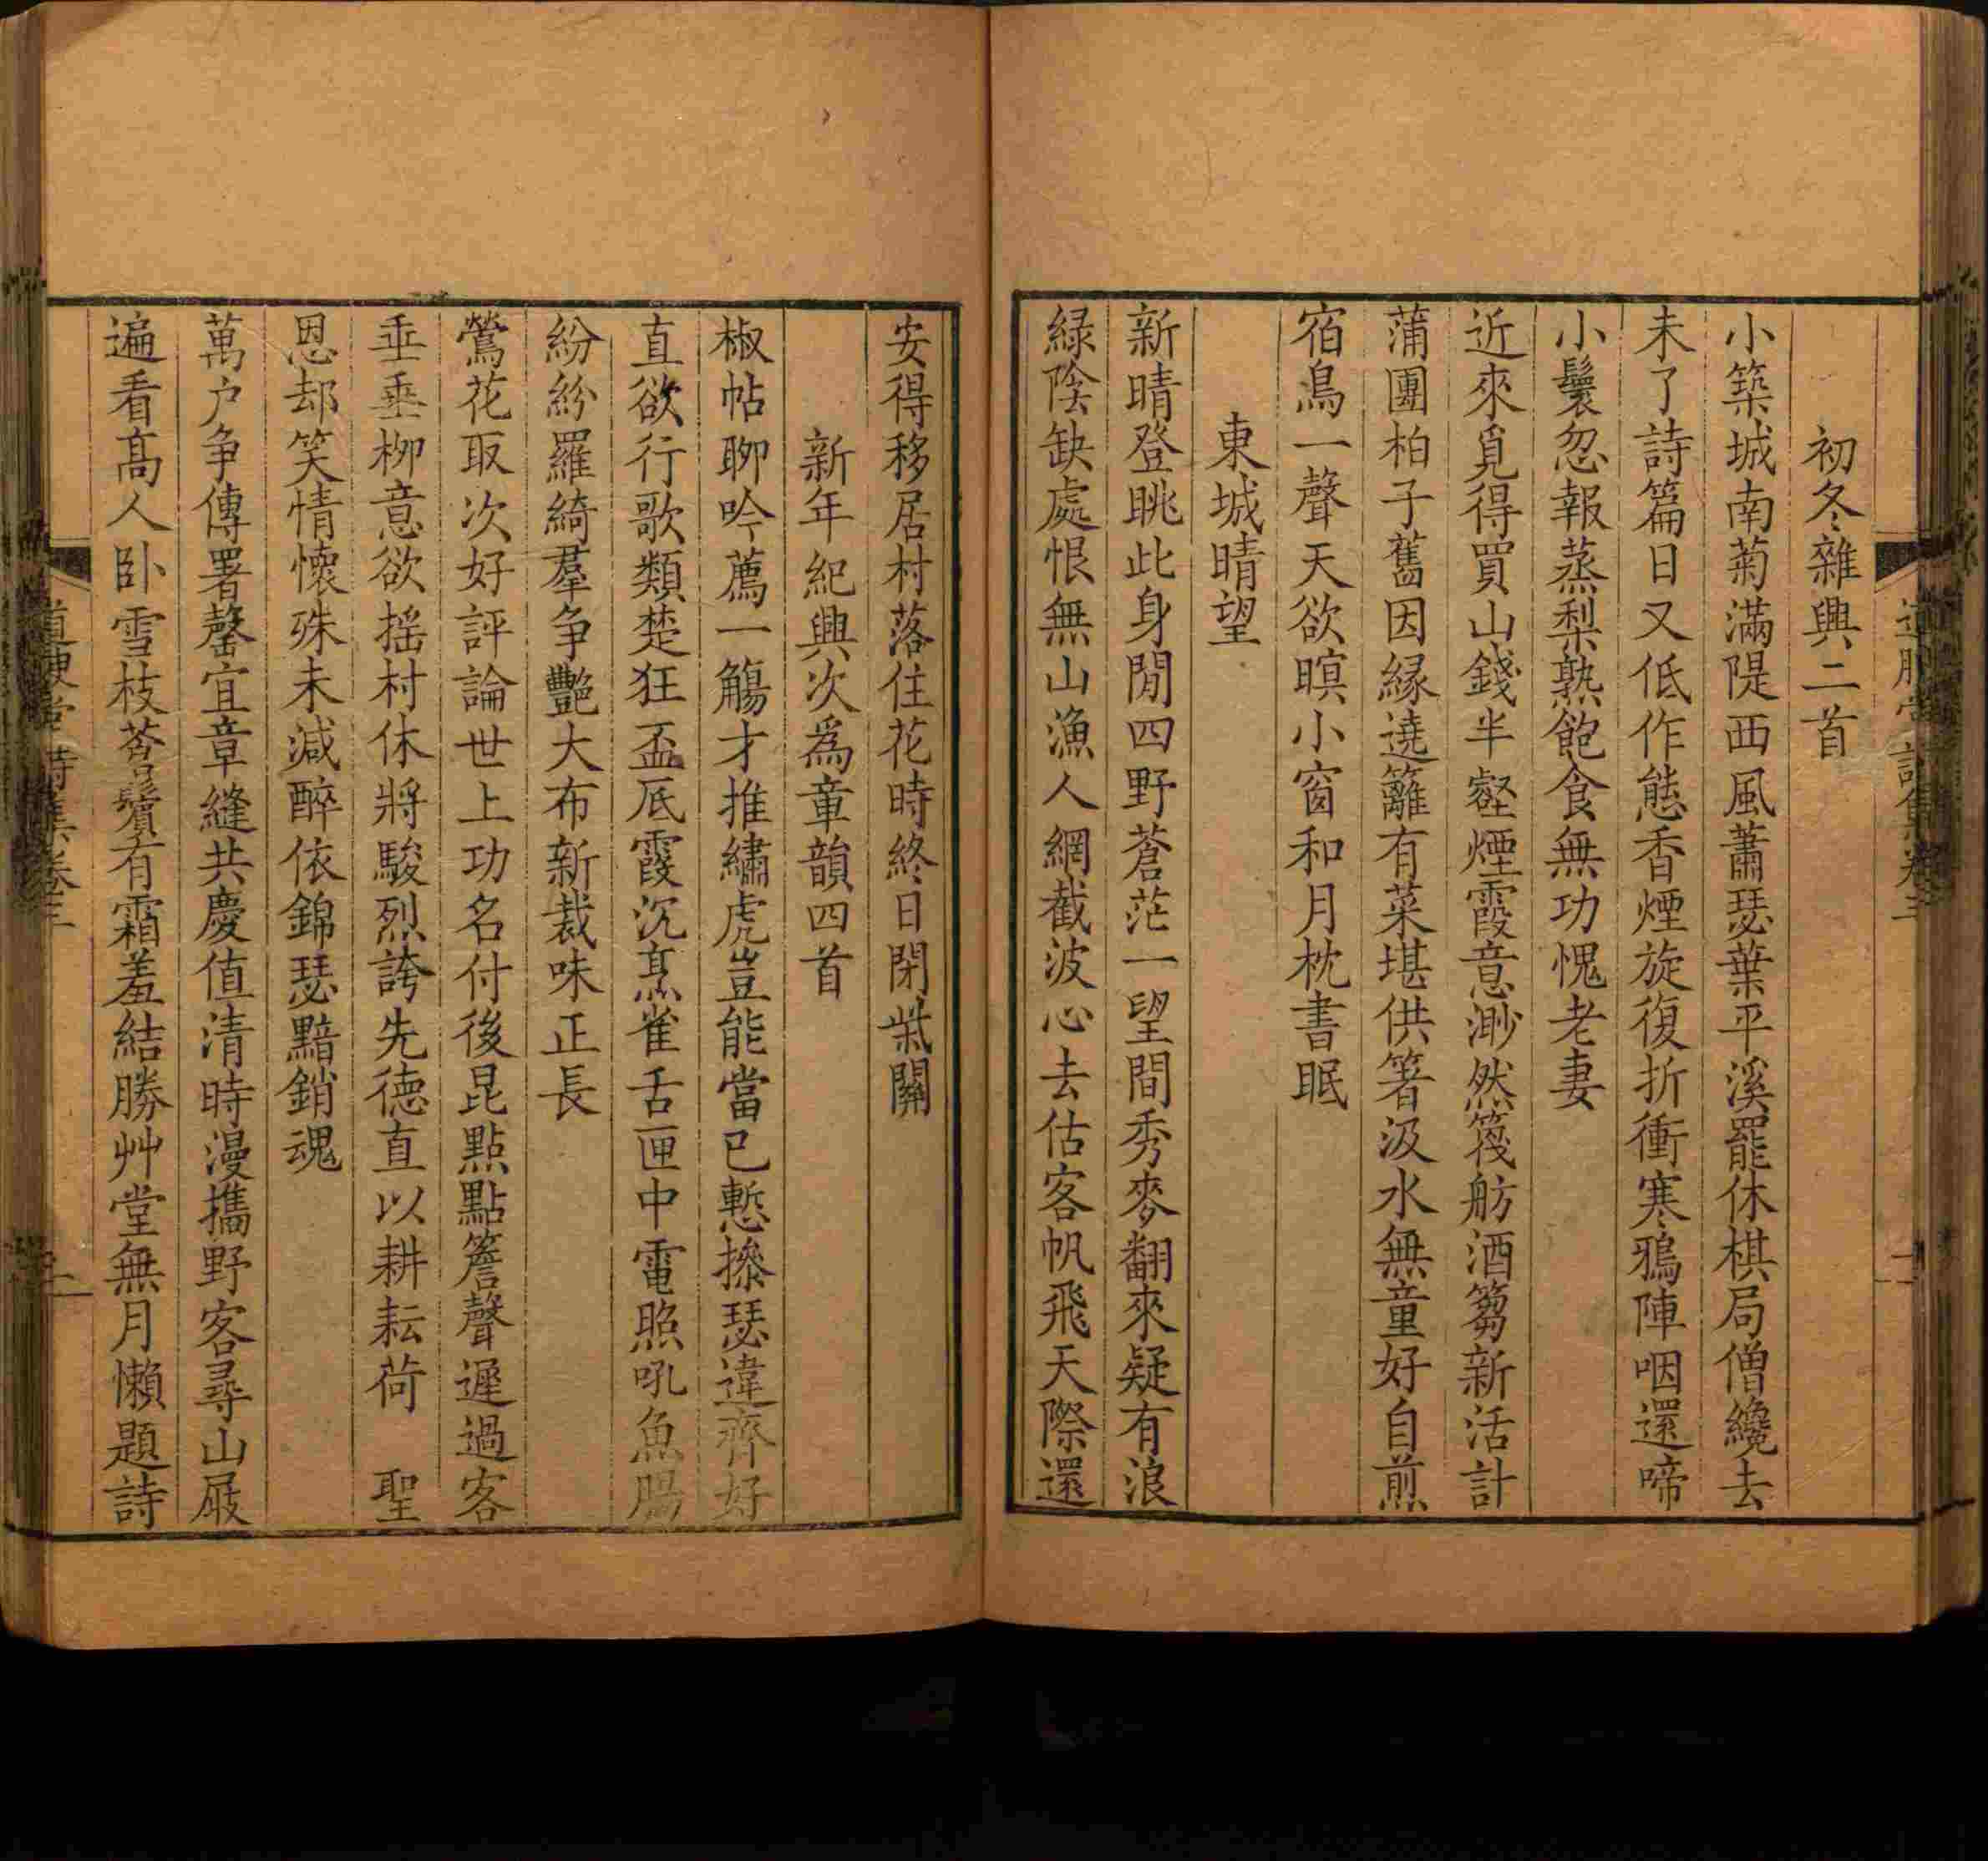 初冬雜興二首
小築城南菊滿隄西風蕭瑟葉平溪罷休棋局僧纔去
未了詩篇日又低作態香煙旋復折衝寒鴉陣咽還啼
小鬟忽報蒸梨熟飽食無功愧老妻
近來覓得買山錢半壑煙霞意渺然筏舫酒篘新活計
蒲團柏子舊因緣遶籬有菜堪供箸汲水無童好自煎
宿鳥一聲天欲暝小窗和月枕書眠
東城晴望
新晴登眺此身閒四野蒼茫一望間秀麥翻來疑有浪
綠陰缺處恨無山漁人網截波心去估客帆飛天際還
安得移居村落住花時終日閉柴關
新年紀興次為章韻四首
椒帖聊吟薦一觴才推繡虎豈能當已慙摻瑟違齊好
直欲行歌類楚狂盃底霞沉熏雀舌匣中電照吼魚腸
紛紛羅綺羣争艷大布新裁味正長
鶯花取次好評論世上功名付後昆點點簷聲遲過客
垂垂柳意欲搖村休將駿烈誇先德直以耕耘荷　聖
恩却笑情懷殊未減醉依錦瑟黯銷魂
萬户争傳署罄宜章縫共慶值清時漫攜野客尋山屐
遍看高人卧雪枝荅鬢有霜羞結勝艸堂無月懶題詩
詩集卷三